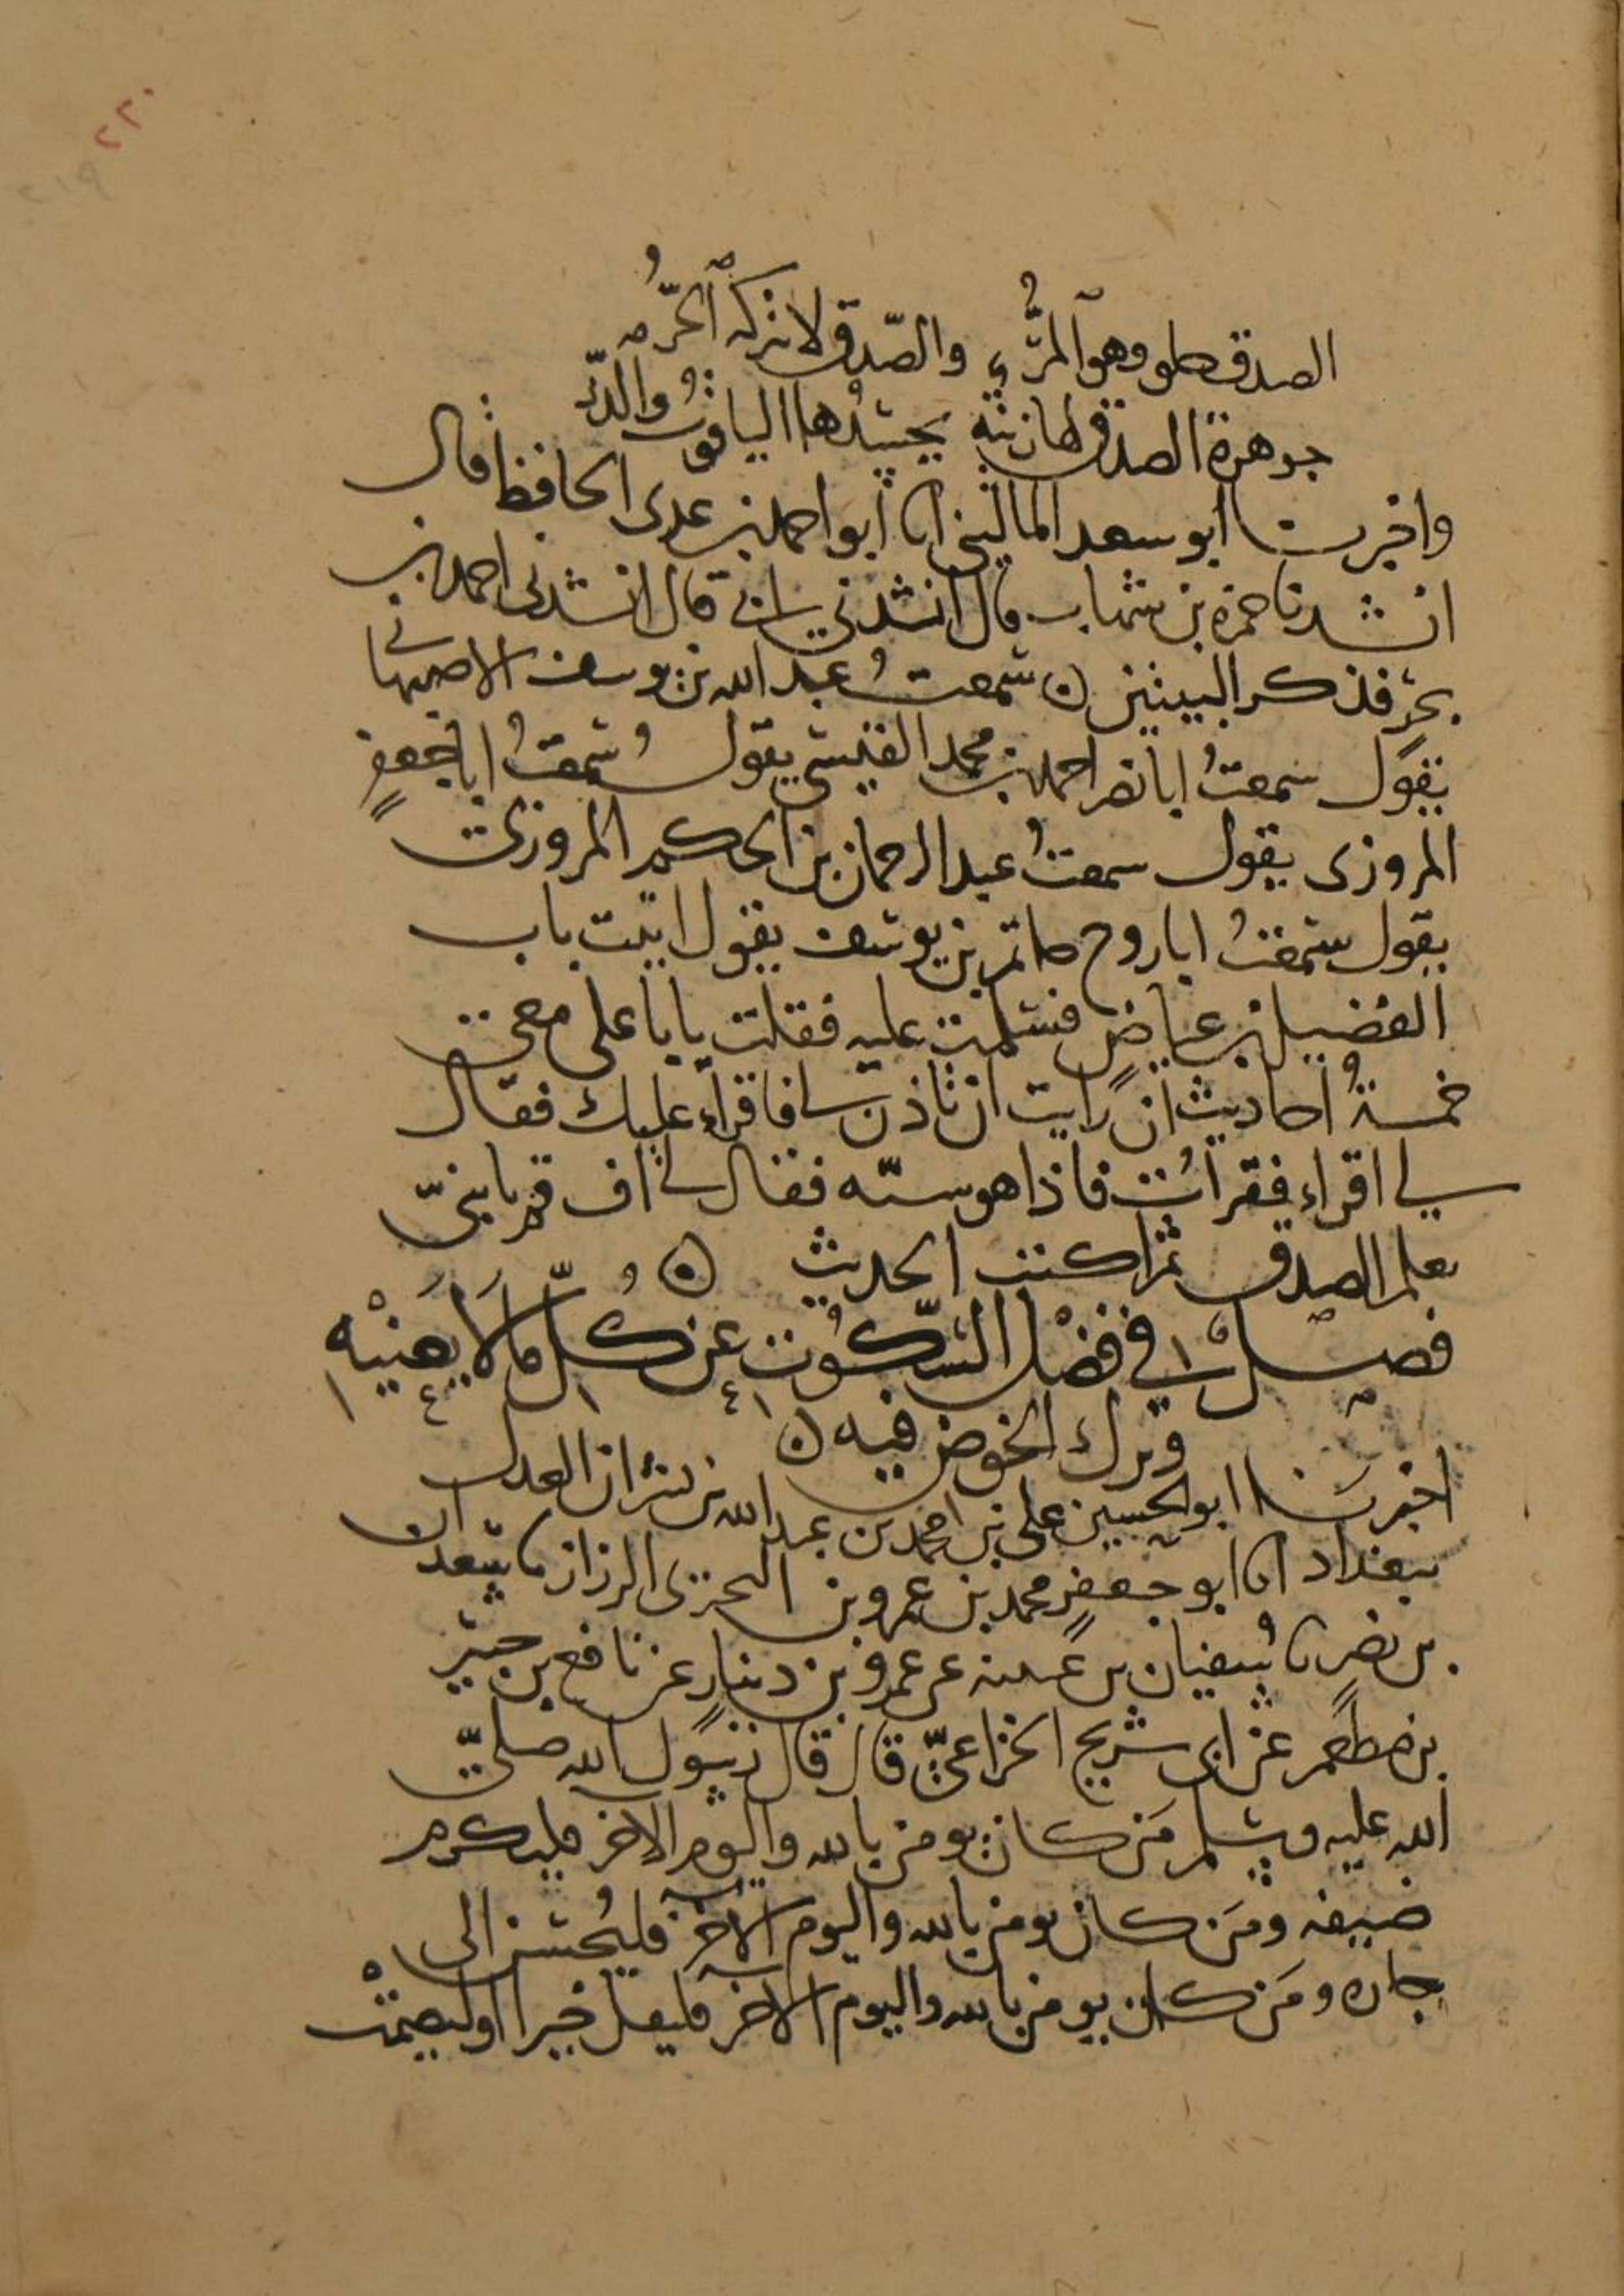 ٢٢٠
٢١٩
الصدق حلو وهو المُرُّ والصّدق لا يتركه الحُرُّ
جوهرة الصدق لها زينة يحسدها الياقوتُ والدُّرُّ
واخبرنا ابو سعد الماليني انا ابو احمد بن عدى الحافظ قال
انشدنا حمزة بن شهاب قال انشدني ابي قال انشدنى احمد بن
بحرٍ فذكر البيتين ن سمعتُ عبد الله بن يوسف الاصبهاني
يقول سمعتُ ابا نصر احمد بن محمد القيسى يقول سُمعتُ ابا جعفرٍ
المروزى يقول سمعتُ عبد الرحمان بن الحكم المروزى
يقول سمعتُ ابا روح حاتم بن يوسف يقول اتيت باب
الفضيل بن عياضٍ فسلمت عليه فقلت يابا على معى
خمسةُ احاديث ان رايت ان تاذن لي فاقراء عليك فقال
لي اقراء فقرأت فاذا هو ستّه فقال لي اف قم يا بنىّ
تعلم الصدق ثم اكتب الحديث ن
فصل في فضْل السّكُوت عن كُلِّ مَا لَا يَعنيْه
وترك الخوض فيه ن
اخبرنا ابو الحسين على بن احمد بن عبد الله بن بشران العدل
ببغداد انا ابو جعفرٍ محمد بن عمرو بن البحترى الرزاز نا سعدان
بن نصر نا سُفيان بن عيينه عن عمرو بن دينارٍ عن نافع بن جبير
بن مطعم عن ابى شريح الخزاعىّ قال قال رسول الله صلى
الله عليه وسلم مَن كان يومن بالله واليوم الاخر فليكرم
ضيفه ومَن كان يومن بالله واليوم الاخر فليُحسن الى
جاره ومَن كان يومن بالله واليوم الاخر فليقل خيرا اوليصمتْ